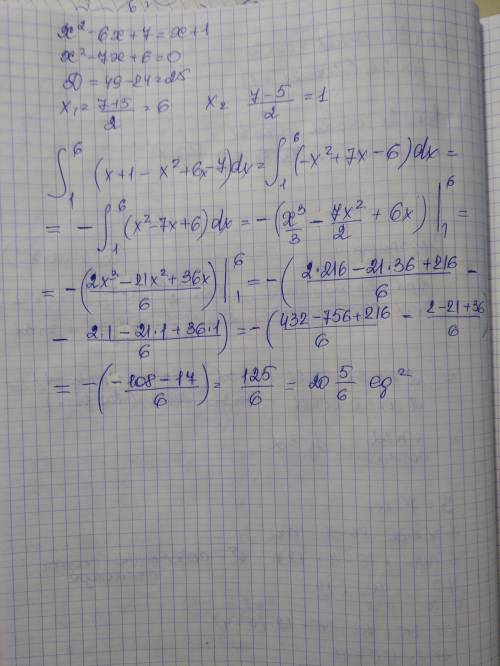 x² - 6x + 7 = x + 1
x² - 7x + 6 = 0
D = 49 - 24 = 25
x₁ = (7+5)/2 = 6   x₂ (7-5)/2 = 1
∫₁⁶ (x + 1 - x² + 6x - 7)dx = ∫₁⁶ (-x² + 7x - 6)dx =
= - ∫₁⁶ (x² - 7x + 6)dx = -(x³/3 - 7x²/2 + 6x) |₁⁶ =
= -((2x³ - 21x² + 36x)/6) |₁⁶ = -((2·216 - 21·36 + 216)/6 -
- (2·1 - 21·1 + 36·1)/6) = -((432 - 756 + 216)/6 - (2 - 21 + 36)/6)
= -((-108 - 17)/6) = 125/6 = 20 5/6 ед²